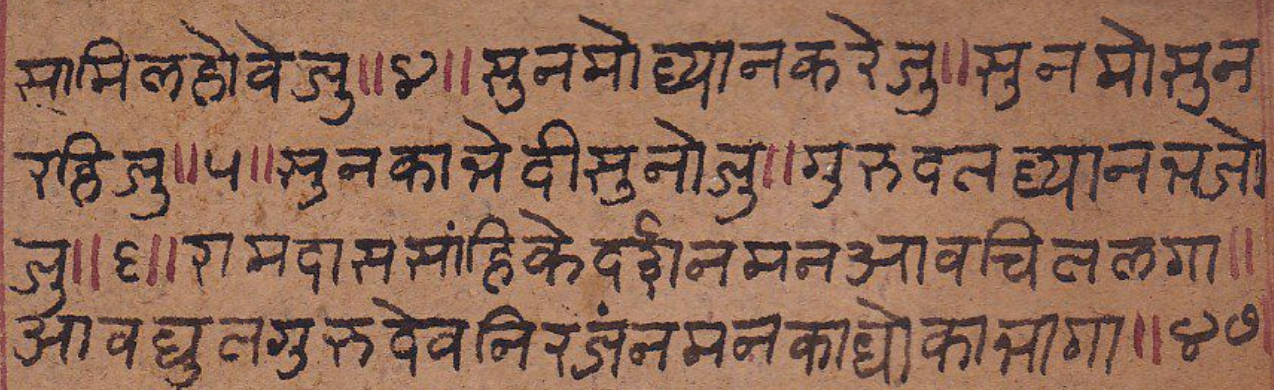 सामिलहोवेजु॥४॥सुनमोध्यानकरेजु॥सुनमोसुन
रहिजु॥५॥सुनकाभेदीसुनोजु॥गुरुदतध्यानभजो
जु॥६॥रामदाससांहिकेदर्शनमनआवचितलगा॥
आवधुतगुरुदेवनिरंजनमनकाधोकाभागा॥४७